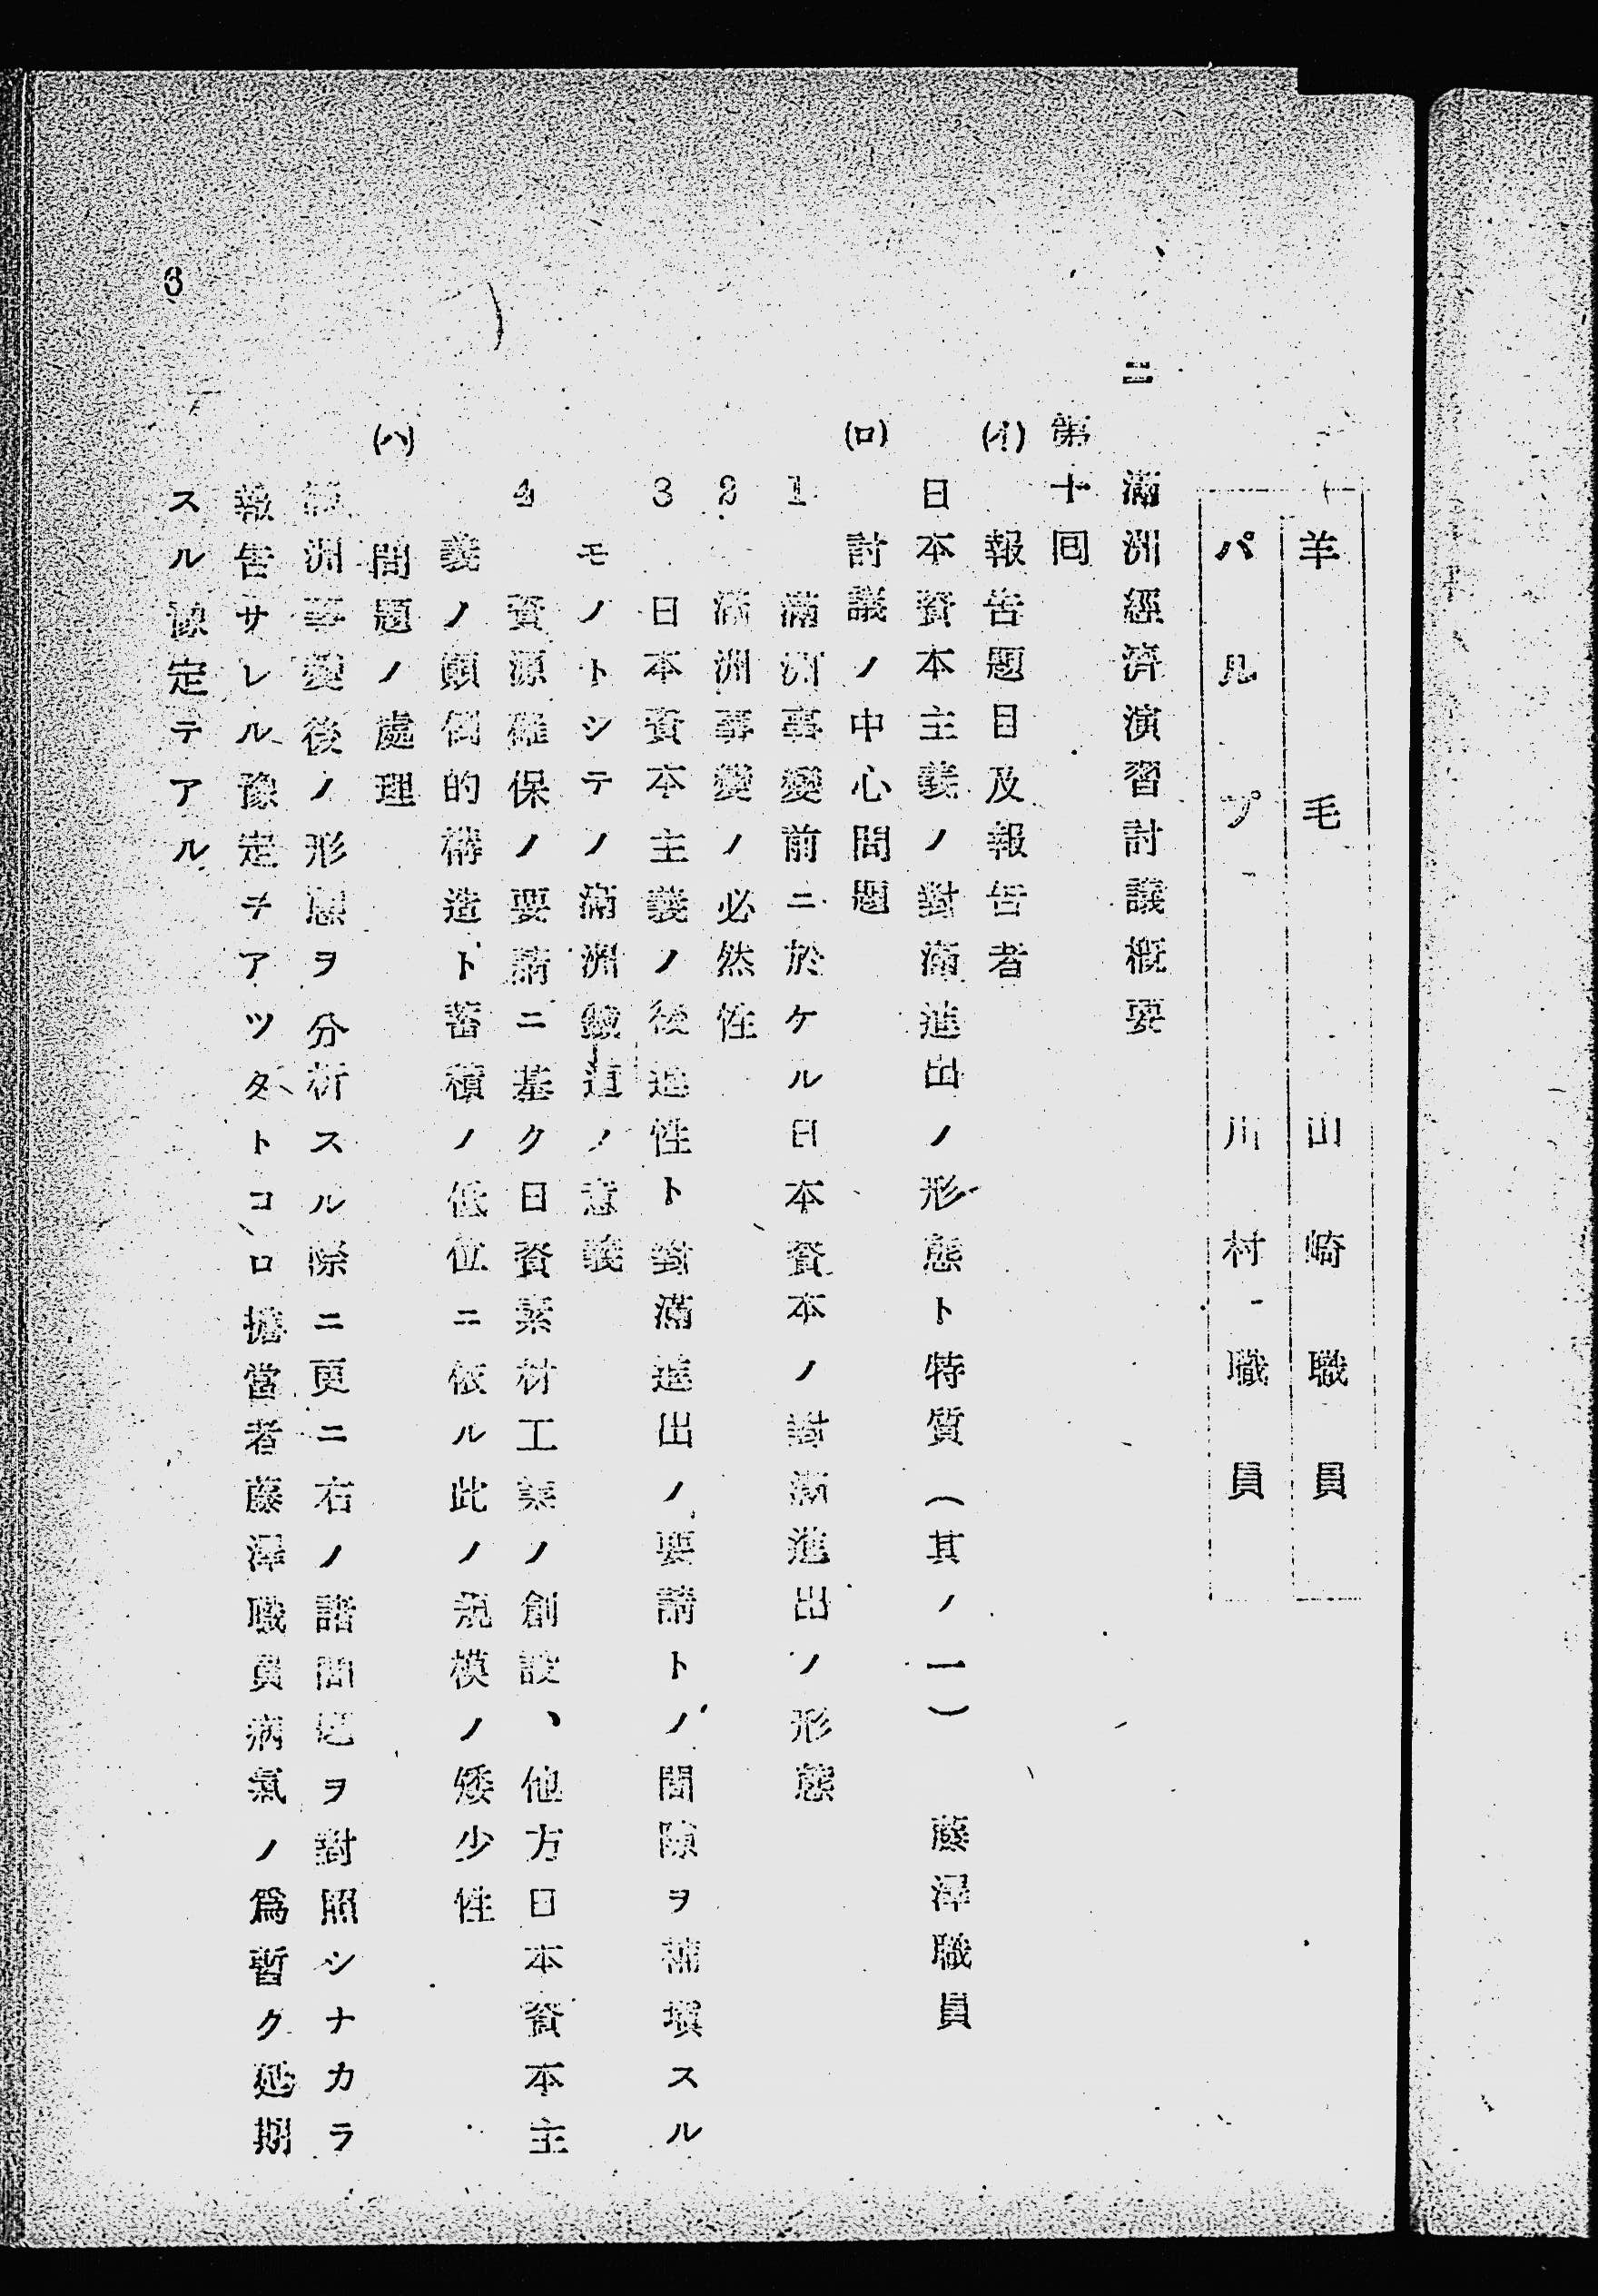 羊毛 山崎職員
パルプ 川村職員
二 滿洲經濟演習討議概要
第十回
(イ) 報告題目及報告者
日本資本主義ノ對滿進出ノ形態ト特質(其ノ一) 藤澤職員
(ロ) 討議ノ中心問題
1 滿洲事變前ニ於ケル日本資本ノ對滿進出ノ形態
2 滿洲事變ノ必然性
3 日本資本主義ノ後進性ト對滿進出ノ要請トノ間隙ヲ補塡スル
モノトシテノ滿洲鐵道ノ意義
4 資源確保ノ要請ニ基ク日資素材工業ノ創設、他方日本資本主
義ノ顚倒的構造ト蓄積ノ低位ニ依ル此ノ規模ノ矮少性
(ハ) 問題ノ處理
滿洲事變後ノ形態ヲ分析スル際ニ更ニ右ノ諸問題ヲ對照シナカラ
報告サレル豫定テアツタトコロ擔當者藤澤職員病氣ノ爲暫ク延期
スル豫定テアル
6